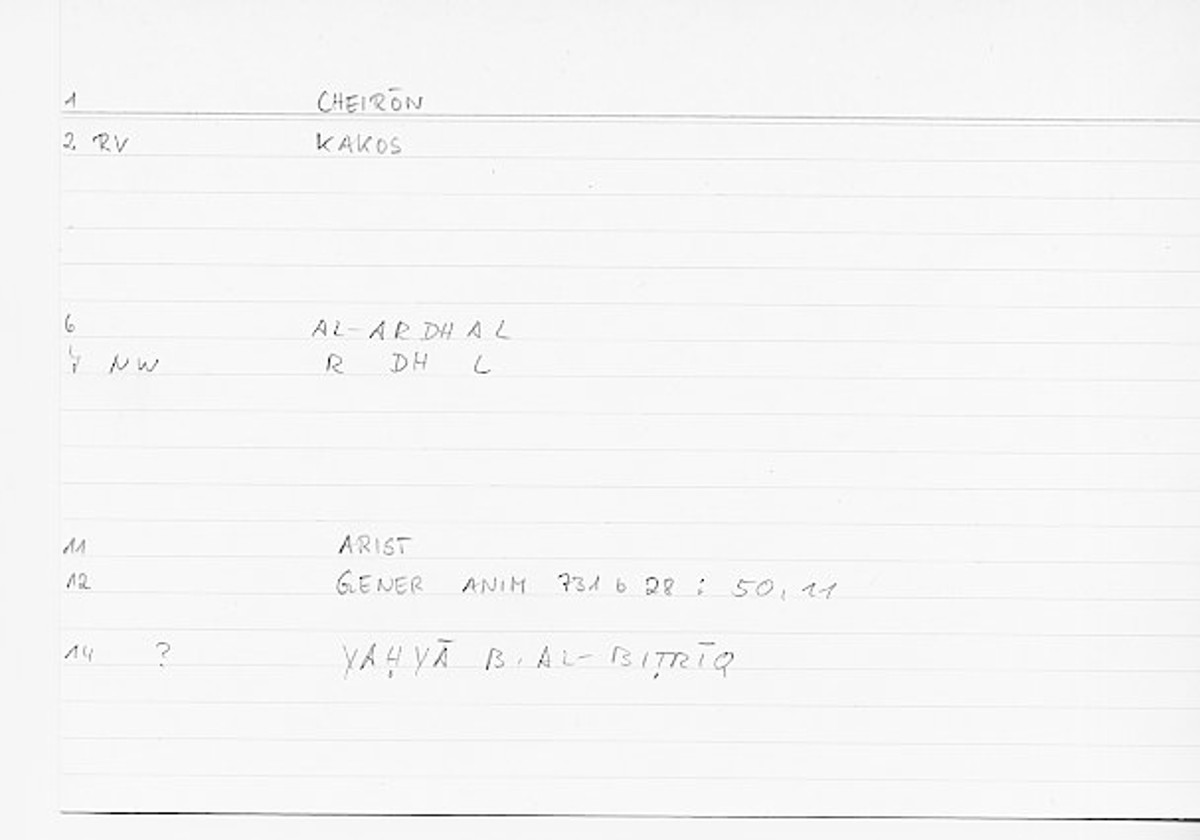 1 CHEIRŌN
2 RV KAKOS
6 AL-ARDHAL
NW R DH L
11 ARIST
12 GENER ANIM 731 b 28 : 50, 11
14 ? YAḤYĀ B. AL-BIṬRĪQ